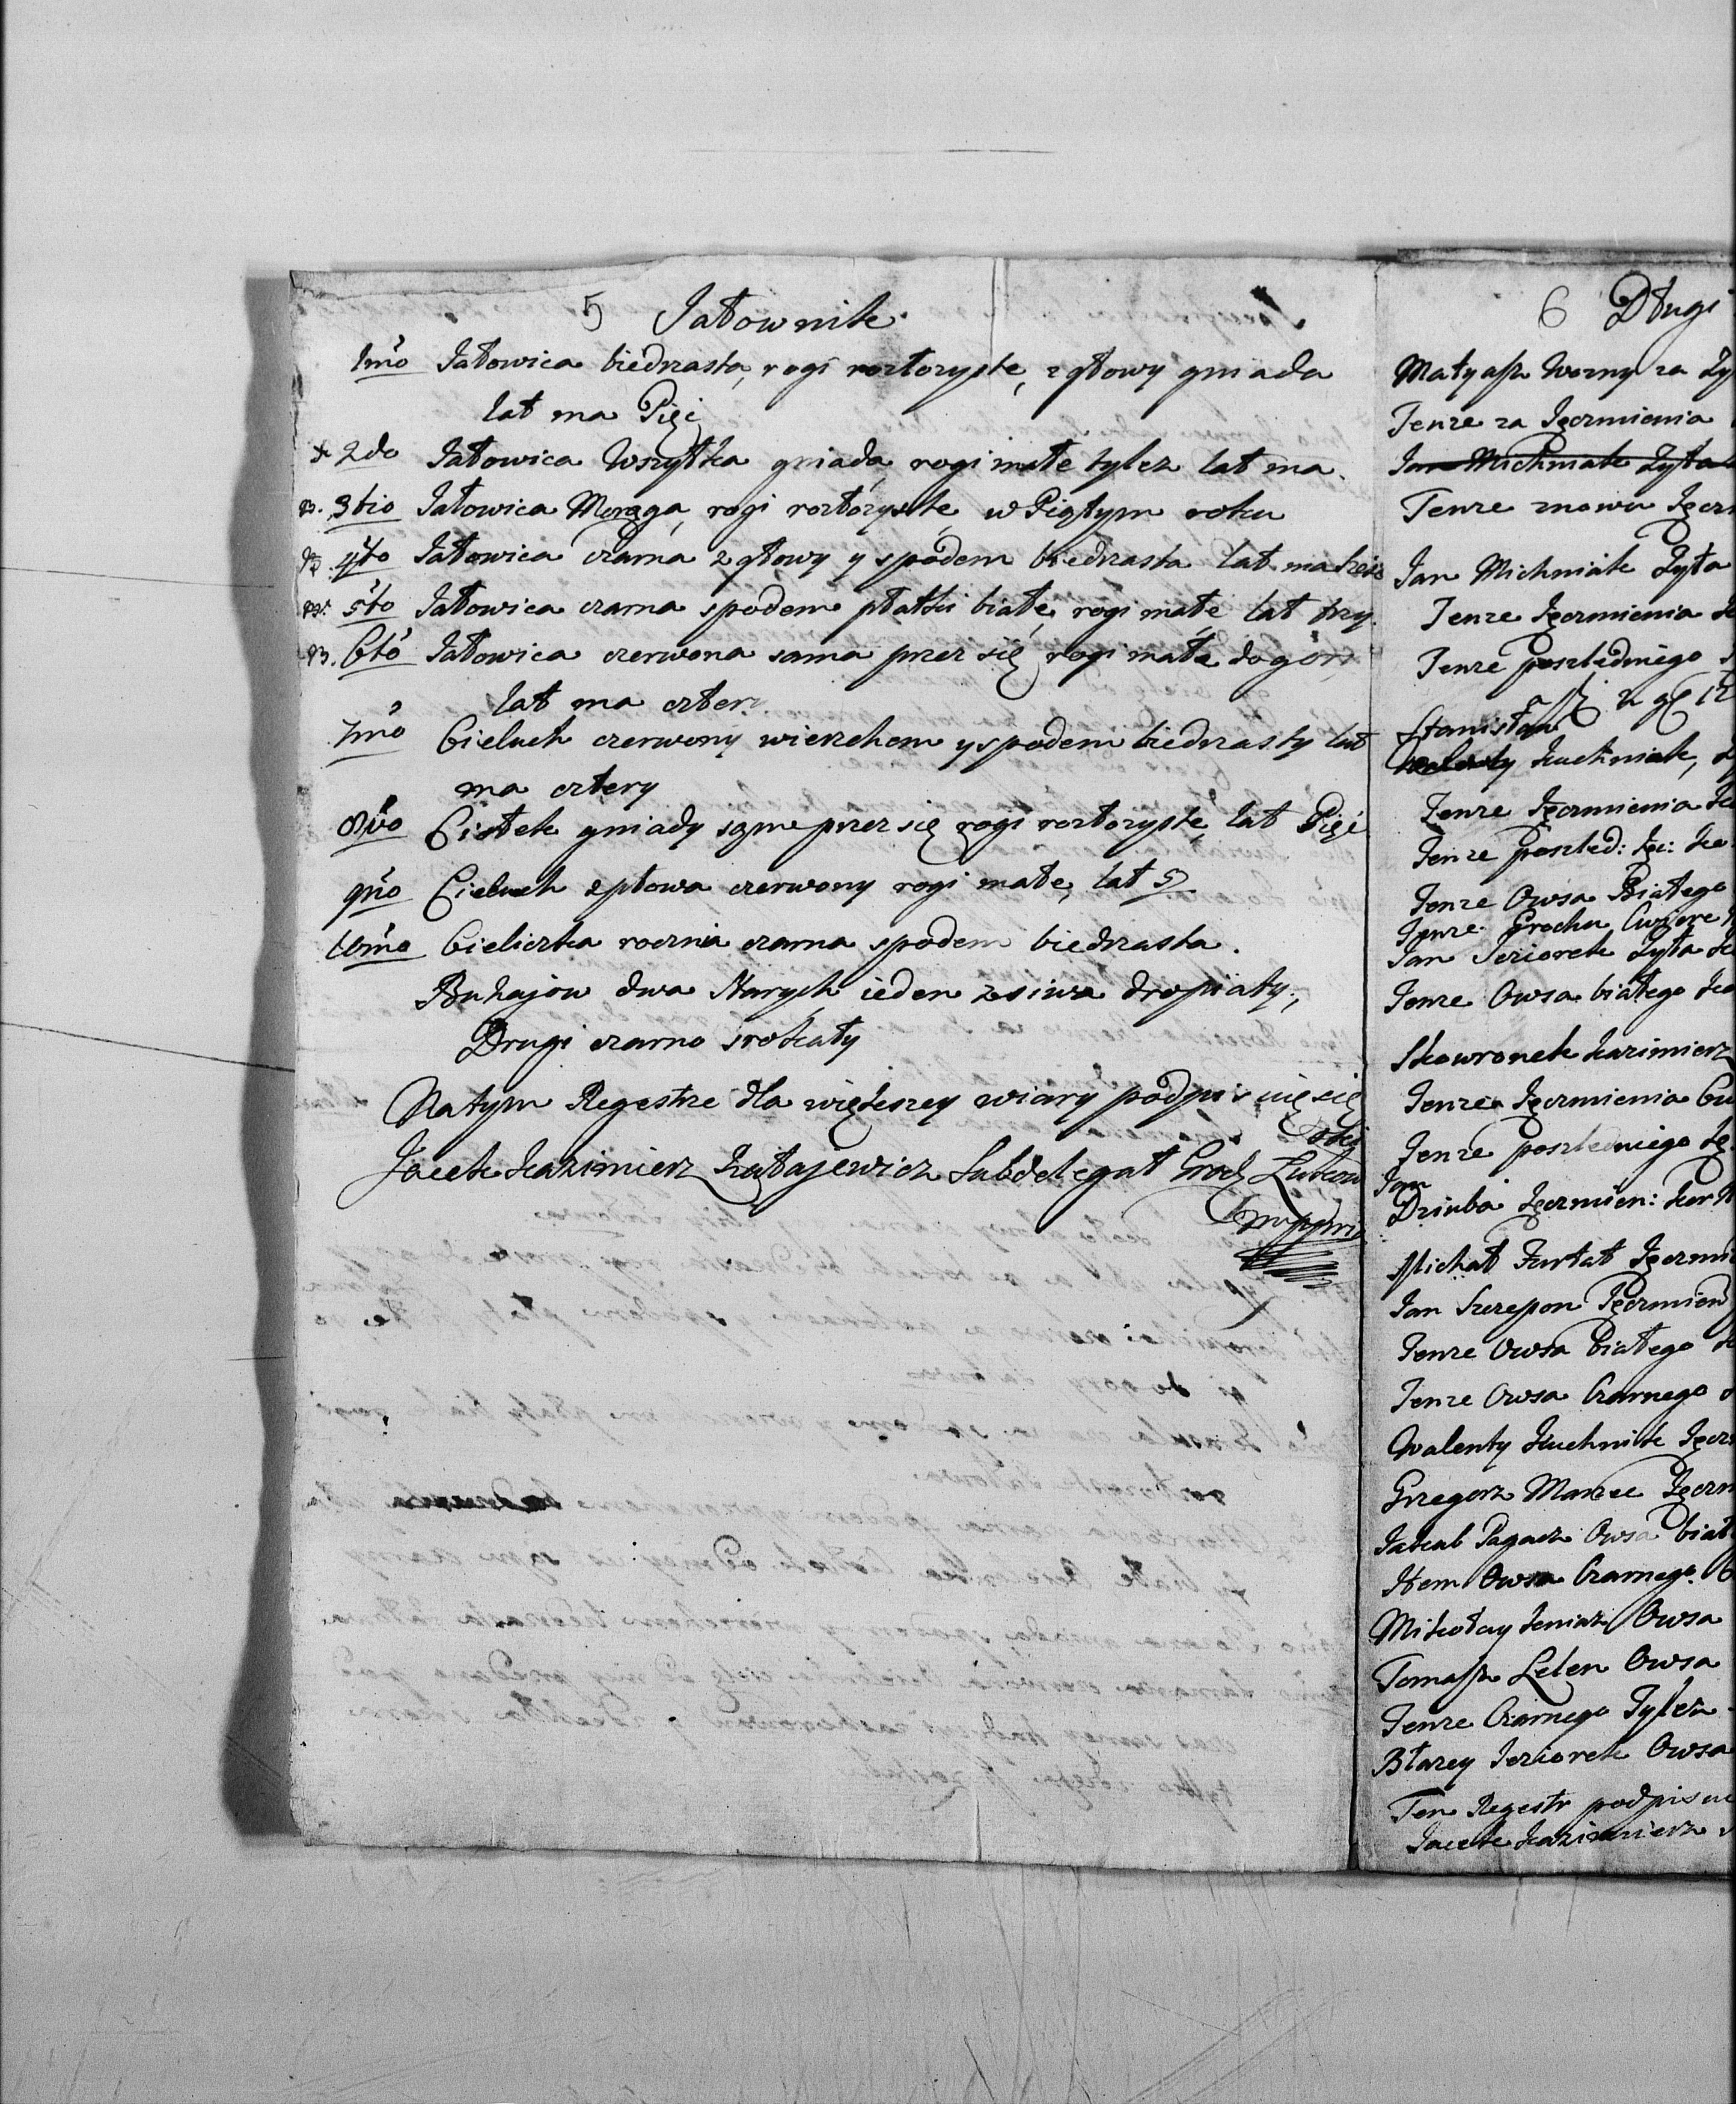 5 Jałownik
1mo Jałowica biedrasta, rogi rozłozyste, z głowy gniada
lat ma Pięć
2do Jałowica Wszytka gniada, rogi małe tylez lat ma.
3tio Jałowica Moręga, rogi rozłozyste w Piątym roku
4to Jałowica czarna z głowy y spodem biedrasta lat ma
5to Jałowica czarna spodem płatki białe, rogi małe lat trzy.
6to Jałowica czerwona sama przez się, rogi małe do góry
lat ma cztery
7mo Cieluch czerwony wierzchem y spodem biedrasty lat
ma cztery
8vo Ciołek gniady sam przez się rogi rozłozyste, lat Pięć
9no Cieluch z płowa czerwony rogi małe, lat 5
10mo Cieliczka rocznia czarna spodem biedrasta.
Buhajow dwa Starych ieden z siwa dropiaty,
Drugi czarno srokaty
Na tym Regestrze dla większey wiary podpisuię się
Jacek Kazimierz Subdelegat Grodz Łukow
mppria
6 Długi
Matyasz Worny za Zy
Tenze za Jęczmienia
Jan Michniak Zyta
Tenze znowu Jęcz
Jan Michniak Zyta
Tenze Jęczmienia
Tenze poszledniego
Stanisław
Kuchniak,
Tenze Jęczmienia
Tenze poszled:
Tenze Owsa Białego
Tenze Grochu
Jan Jeziorek Zyta
Tenze Owsa białego
Skowronek Kazimierz
Tenze Jęczmienia
Tenze poszledniego
Jan
Dziuba Jęczmien:
Michał Furtak Jęczmi
Jan Szczepon Jęczmien
Tenze Owsa białego
Tenze Owsa Czarnego
Walenty Kuchnik Jęcz
Grzegorz Marzec Jęczm
Jakub Pagacz Owsa biał
Item Owsa Czarnego
Mikołay Owsa
Tomasz Lelen Owsa
Tenze Czarnego Tylez
Błazey Jeziorek Owsa
Ten Regestr podpisu
Jacek Kazimierz